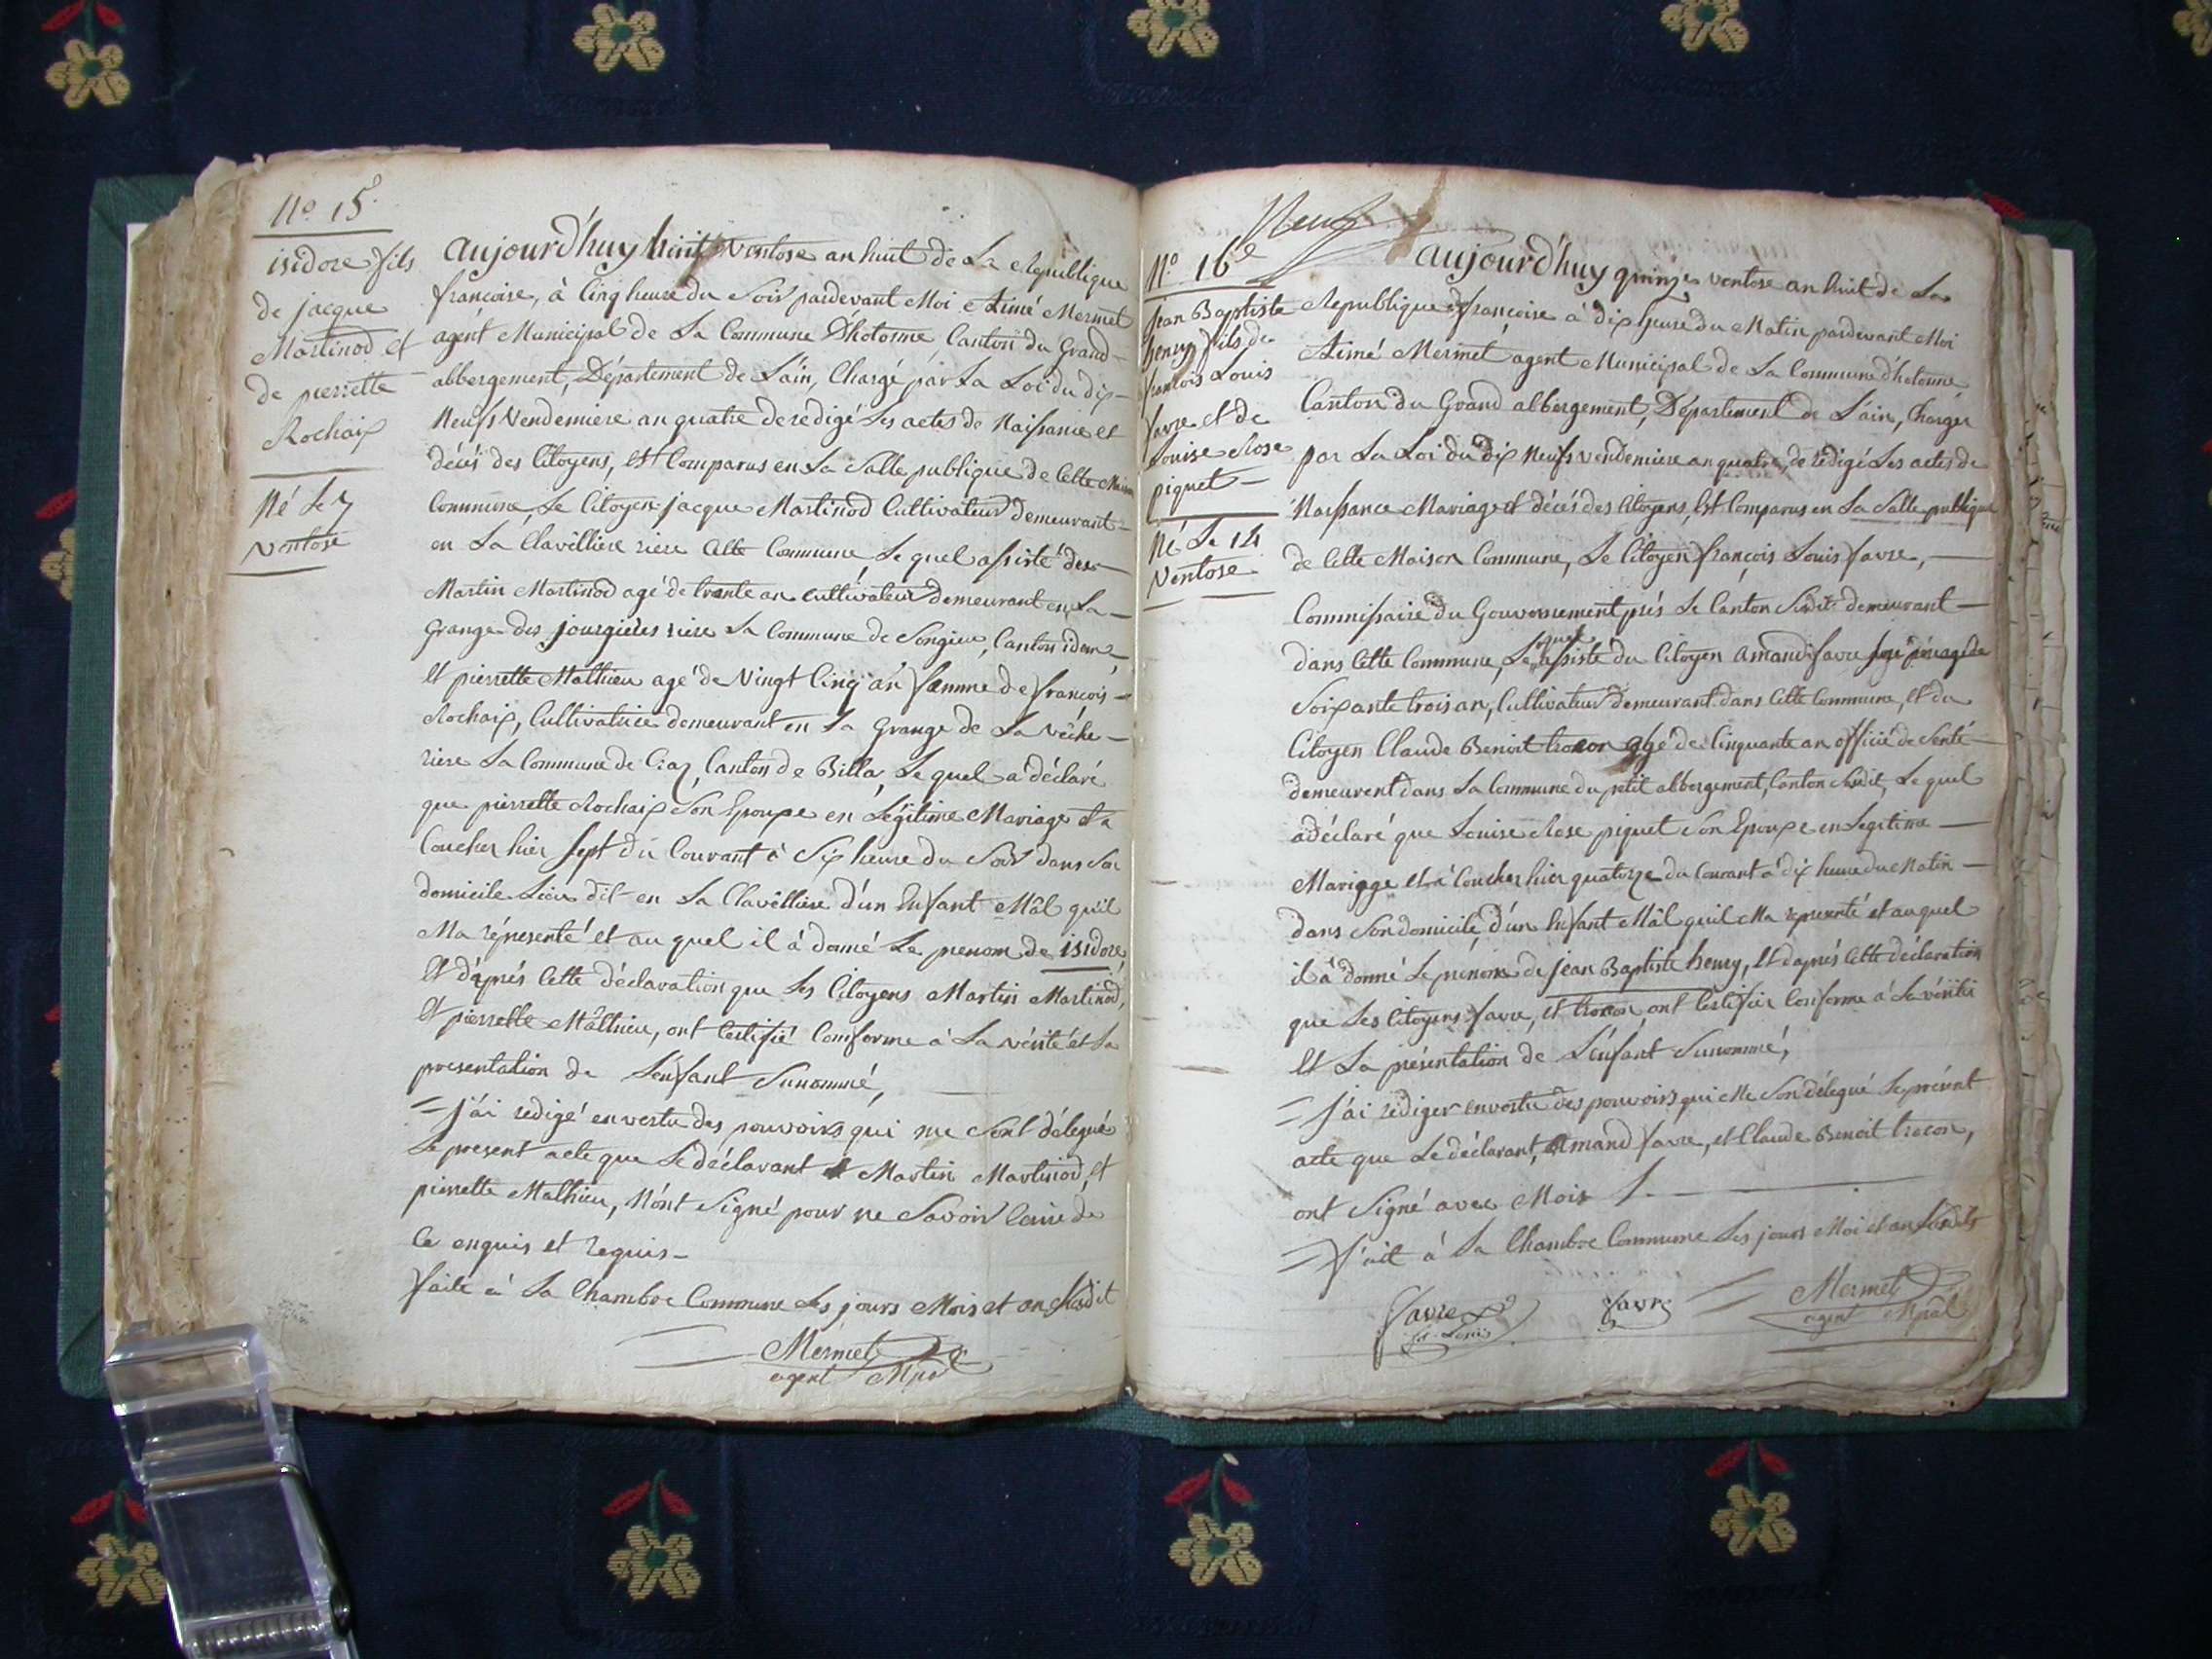 No. 15.
isidore fils
de jacque
Martinod et
de pierrette
Rochaix
Né Le 7
ventose
aujourd'huy huit Ventose an huit de La Republique
francoise, à Cinq heure du Soir pardevant Moi Aimé Mermet
agent Municipal de La Commune D'hotonne, Canton du Grand
abbergement, Département de L'ain, Chargé par La Loi du dix
Neufs Vendemiere an quatre de redigé Les actes de Naissance et
décés des Citoyens, est Comparus en La Salle publique de Cette Maison
Commune, Le Citoyen jacque Martinod Cultivateur demeurant
en La Clavelliere riere Cette Commune, Le quel assisté des
Martin Martinod agé de trente an cultivateur demeurant en La
Grange des jourgieres riere La Commune de Songieu, Canton idem,
et pierrette Mathieu agé de Vingt Cinq an femme de françois
Rochaix, Cultivatrice demeurant en La Grange de La
riere La Commune de Canton de Le quel a déclaré
que pierrette Rochaix Son Epouxe en Légitime Mariage
Coucher hier Sept du Courant à Six heure du Soir dans Son
domicile Lieu dit en La Clavelliere d'un Enfant Mâl qu'il
Ma répresenté et au quel il à donné Le prenom de isidore,
Et d'aprés Cette déclaration que Les Citoyens Martin Martinod,
et pierrette Mathieu, ont Certifié Conforme à La vérité et La
presentation de L'enfant Sunommé,
= j'ai redigé en vertu des pouvoirs qui me Sont délegué
Le present acte que Le déclarant Martin Martinod, et
pierrette Mathieu, N'ont Signé pour ne Savoir Ecrire de
Ce enquis et requis -
faite à La Chambre Commune Les jours Mois et an Susdit
Mermet
agent Mpal
Neuf
No. 16
jean Baptiste
henry fils de
francois Louis
favre et de
Louise Rose
piguet -
Né Le 14
Ventose
aujourd'huy quinze ventose an huit de La
Republique francoise a dix heure du Matin pardevant Moi
Aimé Mermet agent Municipal de La Commune d'hotonne
Canton du Grand abbergement, Département de L'ain, Charger
par La Loi du dix Neufs vendemiere an quatre, de rédigé Les actes de
Naissance Mariage et décés des Citoyens, Est Comparus en La Salle publique
de Cette Maison Commune, Le Citoyen françois Louis favre,
Commissaire du Gouvernement prés Le Canton Susdit demeurant
dans Cette Commune, Le quel assisté du Citoyen amand favre agé de
Soixante trois an, Cultivateur demeurant dans Cette Commune, et du
Citoyen Claude Benoit trocon agé de Cinquante an officié de Senté
demeurent dans La Commune du petit abbergement, Canton Susdit, Le quel
a déclaré que Louise Rose piguet Son Epouxe en Legitime
Mariage Coucher hier quatorze du Courant a dix heure du Matin
dans Son domicile, d'un Enfant Mâl qu'il Ma representé et au quel
il à donné Le prenom de jean Baptiste henry, Et d'aprés Cette déclaration
que Les Citoyens favre, et trocon, ont Certifier Conforme à La vérité
et La présentation de L'énfant Sunommé,
= j'ai rédiger en vertu des pouvoirs qui Me Son délegué Le présent
acte que Le déclarant, Amand favre, et Claude Benoit trocon,
ont Signé avec Moi
= fait à La Chambre Commune Les jours Moi et an Susdits
favre
fs Louis
favre
Mermet
agent Mpal